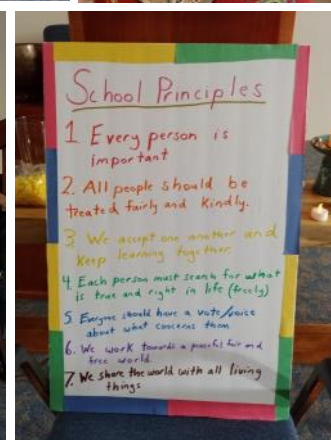 School Principles
1 Every person is
important
2. All people should be
treated fairly and kindly.
3. We accept one another and
keep learning together.
4. Each person must search for what
is true and right in life (freely)
5. Everyone should have a vote/voice
about what concerns them
6. We work towards a peaceful fair and
free world.
7. We share the world with all living
things